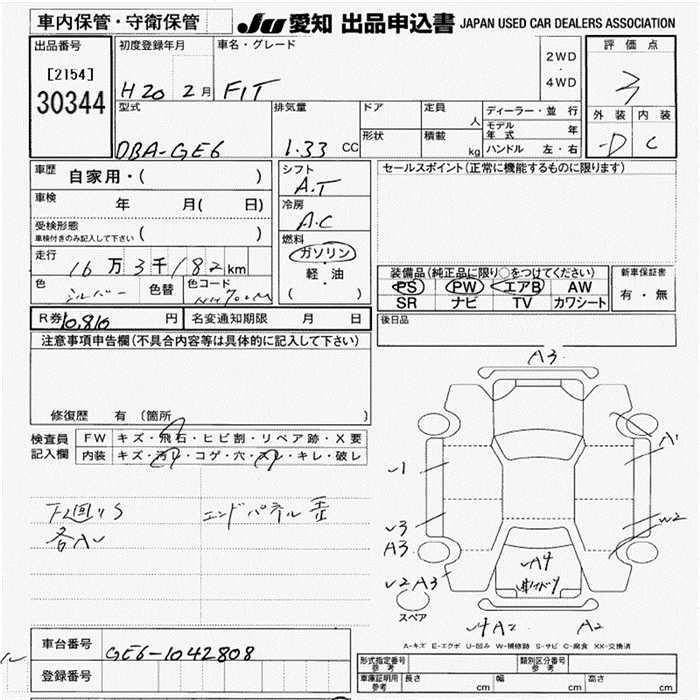 車内保管・守衛保管
JU 愛知 出品申込書 JAPAN USED CAR DEALERS ASSOCIATION
出品番号
[2154]
30344
初度登録年月
H20 2月
車名・グレード
FIT
2WD
・
4WD
評価点
3
外装 内装
-D C
型式
DBA-GE6
排気量
1.33 CC
ドア
形状
定員
人
積載
kg
ディーラー・並行
モデル年式 年
ハンドル 左・右
車歴
自家用・( )
車検
年 月( 日)
受検形態
車検付きのみ記入して下さい ( )
走行
16万3千182km
色
シルバー
色替
色コード
NH700M
シフト
A.T
冷房
A.C
燃料
ガソリン
・
軽油
( )
セールスポイント(正常に機能するものに限ります)
装備品(純正品に限り○をつけてください)
PS PW エアB AW
SR ナビ TV カワシート
新車保証書
有・無
R券 10,810 円
名変通知期限 月 日
後日品
注意事項申告欄(不具合内容等は具体的に記入して下さい)
修復歴 有(箇所 )
検査員
記入欄
FW キズ・飛石・ヒビ割・リペア跡・X要
内装 キズ・汚レ・コゲ・穴・スレ・キレ・破レ
下回りS
各AU
エンドパネル
A3
A1
W2
A3
A4
A3
A2
A2
スペア
A-キズ E-エクボ U-凹み W-補修跡 S-サビ C-腐食 XX-交換済
車台番号
GE6-1042808
登録番号
形式指定番号
参考
類別区分番号
参考
車庫証明用
参考
長さ cm 幅 cm 高さ cm